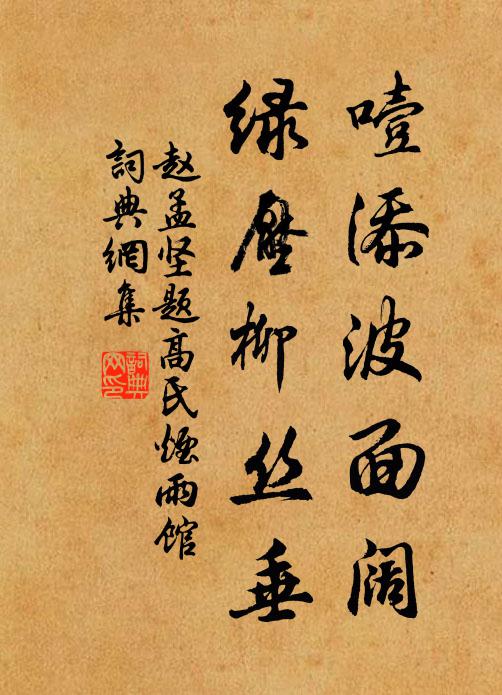 噎添波面阔
绿压柳丝垂
赵孟坚题高氏烟雨馆
詞典網集
詞典网印